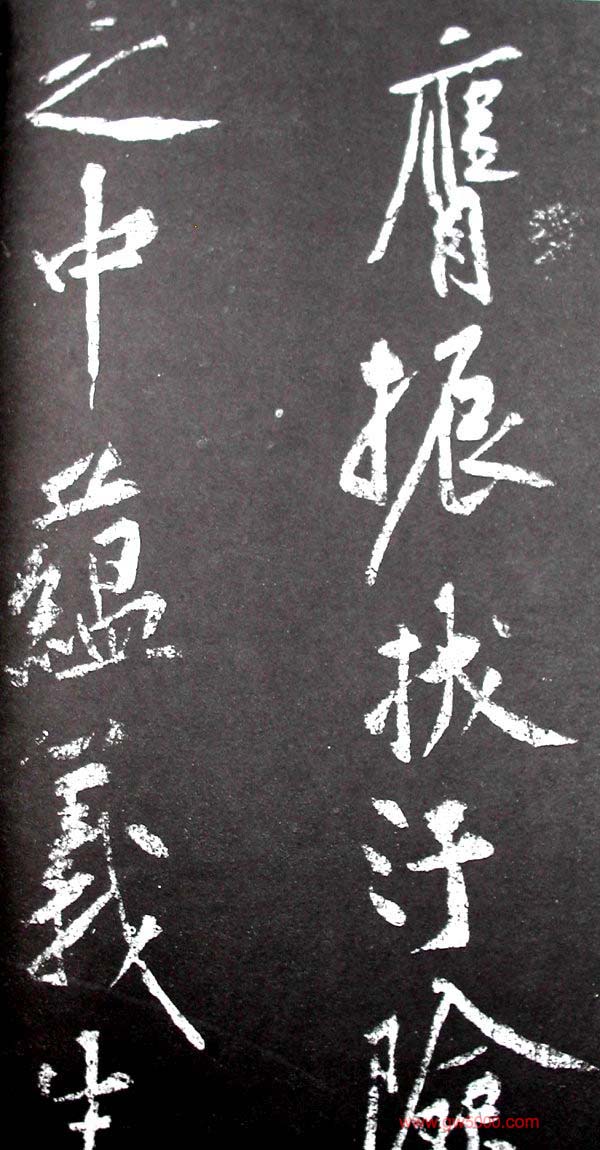 膺振拔汙險
之中蘊義生
www.gw5000.com